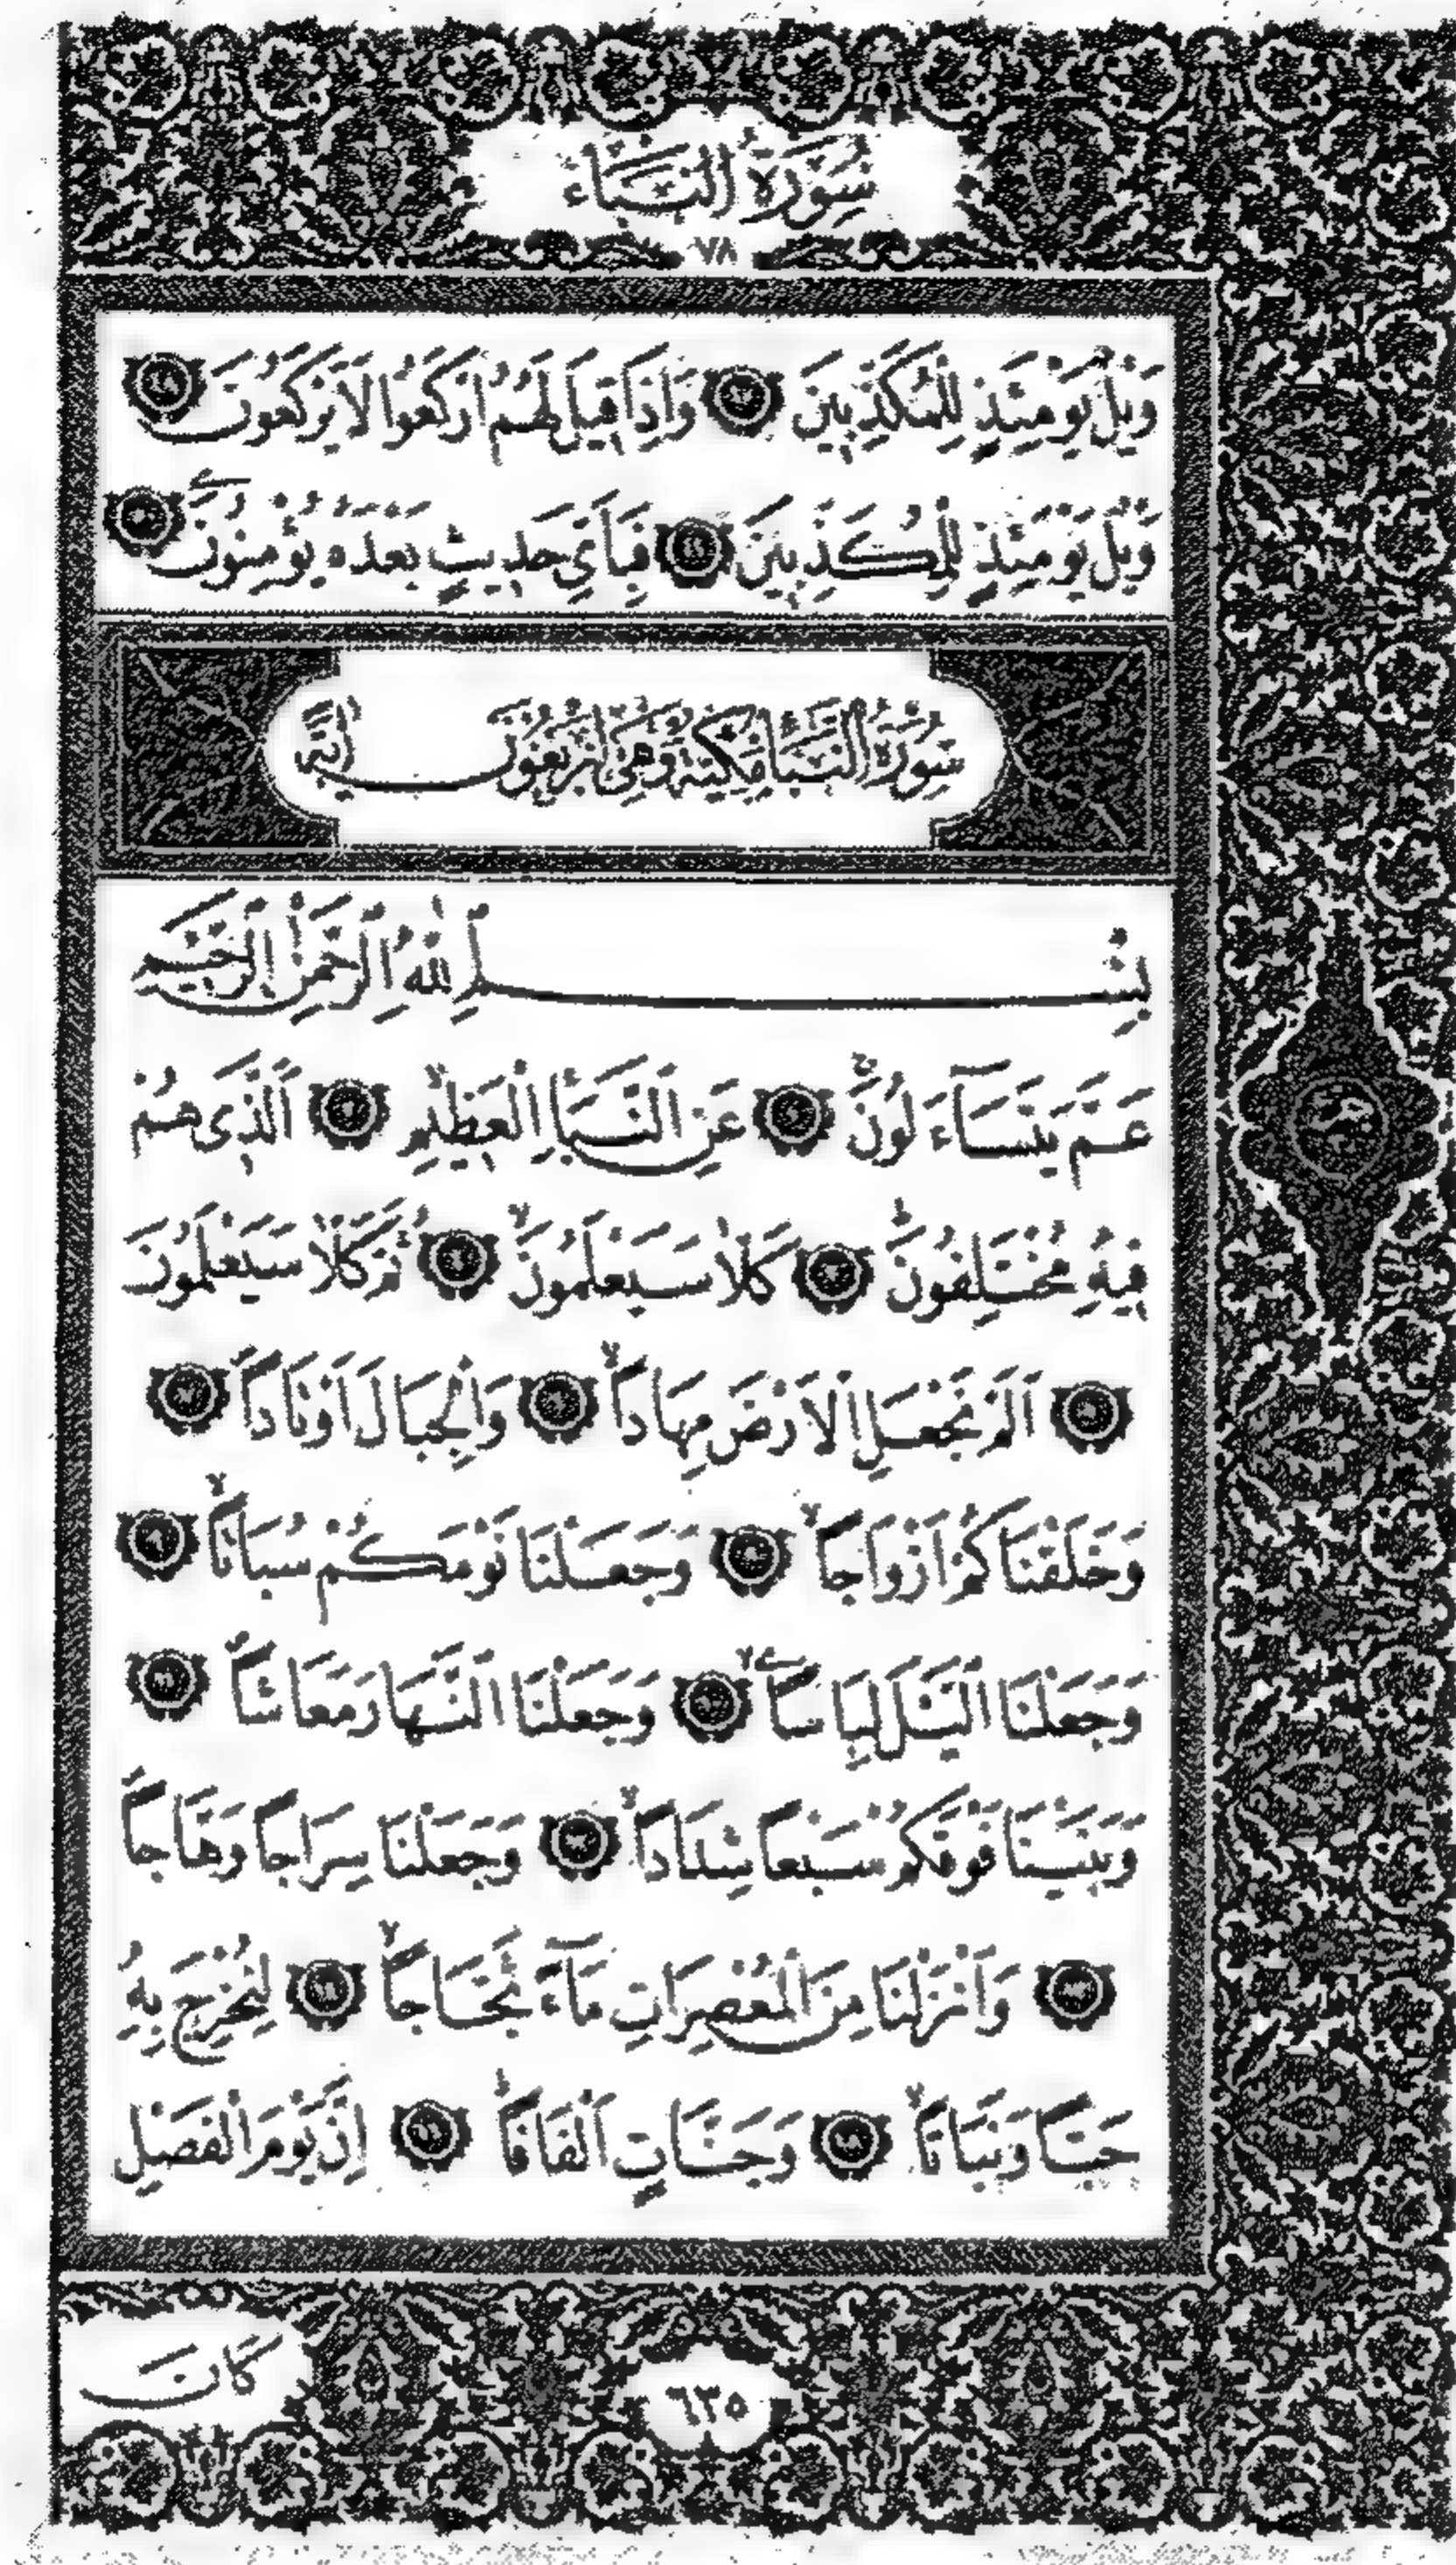 سُورَةُ النَّبَاءِ
٧٨
وَيْلٌ يَوْمَئِذٍ لِلْمُكَذِّبِينَ ﴿٤٧﴾ وَاِذَا قِيلَ لَهُمُ ارْكَعُوا لَا يَرْكَعُونَ ﴿٤٨﴾
وَيْلٌ يَوْمَئِذٍ لِلْمُكَذِّبِينَ ﴿٤٩﴾ فَبِاَيِّ حَدِيثٍ بَعْدَهُ يُؤْمِنُونَ ﴿٥٠﴾
سُورَةُ النَّبَأِ مَكِّيَّةٌ وَهِيَ اَرْبَعُونَ اٰيَةً
بِسْمِ اللّٰهِ الرَّحْمٰنِ الرَّحِيمِ
عَمَّ يَتَسَآءَلُونَۚ ﴿١﴾ عَنِ النَّبَأِ الْعَظِيمِۙ ﴿٢﴾ اَلَّذِى هُمْ
فِيهِ مُخْتَلِفُونَۜ ﴿٣﴾ كَلَّا سَيَعْلَمُونَۙ ﴿٤﴾ ثُمَّ كَلَّا سَيَعْلَمُونَ
﴿٥﴾ اَلَمْ نَجْعَلِ الْاَرْضَ مِهَادًاۙ ﴿٦﴾ وَالْجِبَالَ اَوْتَادًاۖ ﴿٧﴾
وَخَلَقْنَاكُمْ اَزْوَاجًاۙ ﴿٨﴾ وَجَعَلْنَا نَوْمَكُمْ سُبَاتًاۙ ﴿٩﴾
وَجَعَلْنَا الَّيْلَ لِبَاسًاۙ ﴿١٠﴾ وَجَعَلْنَا النَّهَارَ مَعَاشًاۖ ﴿١١﴾
وَبَنَيْنَا فَوْقَكُمْ سَبْعًا شِدَادًاۙ ﴿١٢﴾ وَجَعَلْنَا سِرَاجًا وَهَّاجًاۖ
﴿١٣﴾ وَاَنْزَلْنَا مِنَ الْمُعْصِرَاتِ مَآءً ثَجَّاجًاۙ ﴿١٤﴾ لِنُخْرِجَ بِهِ
حَبًّا وَنَبَاتًاۙ ﴿١٥﴾ وَجَنَّاتٍ اَلْفَافًاۜ ﴿١٦﴾ اِنَّ يَوْمَ الْفَصْلِ
كَانَ
٦٣٥